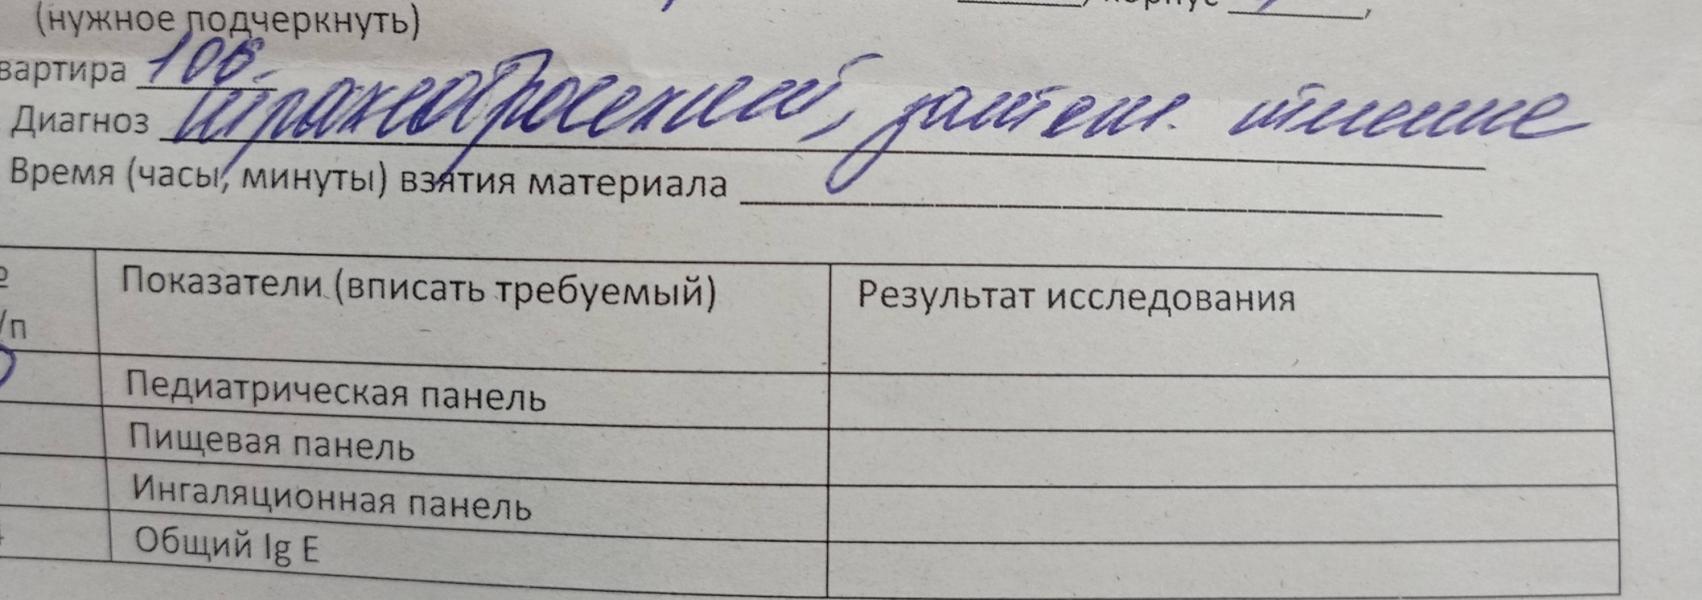 корпус
(нужное подчеркнуть)
вартира 106.
Диагноз Трахеобронхит, затяж. течение
Время (часы, минуты) взятия материала
№ Показатели (вписать требуемый) Результат исследования
/п
Педиатрическая панель
Пищевая панель
Ингаляционная панель
4 Общий Ig E